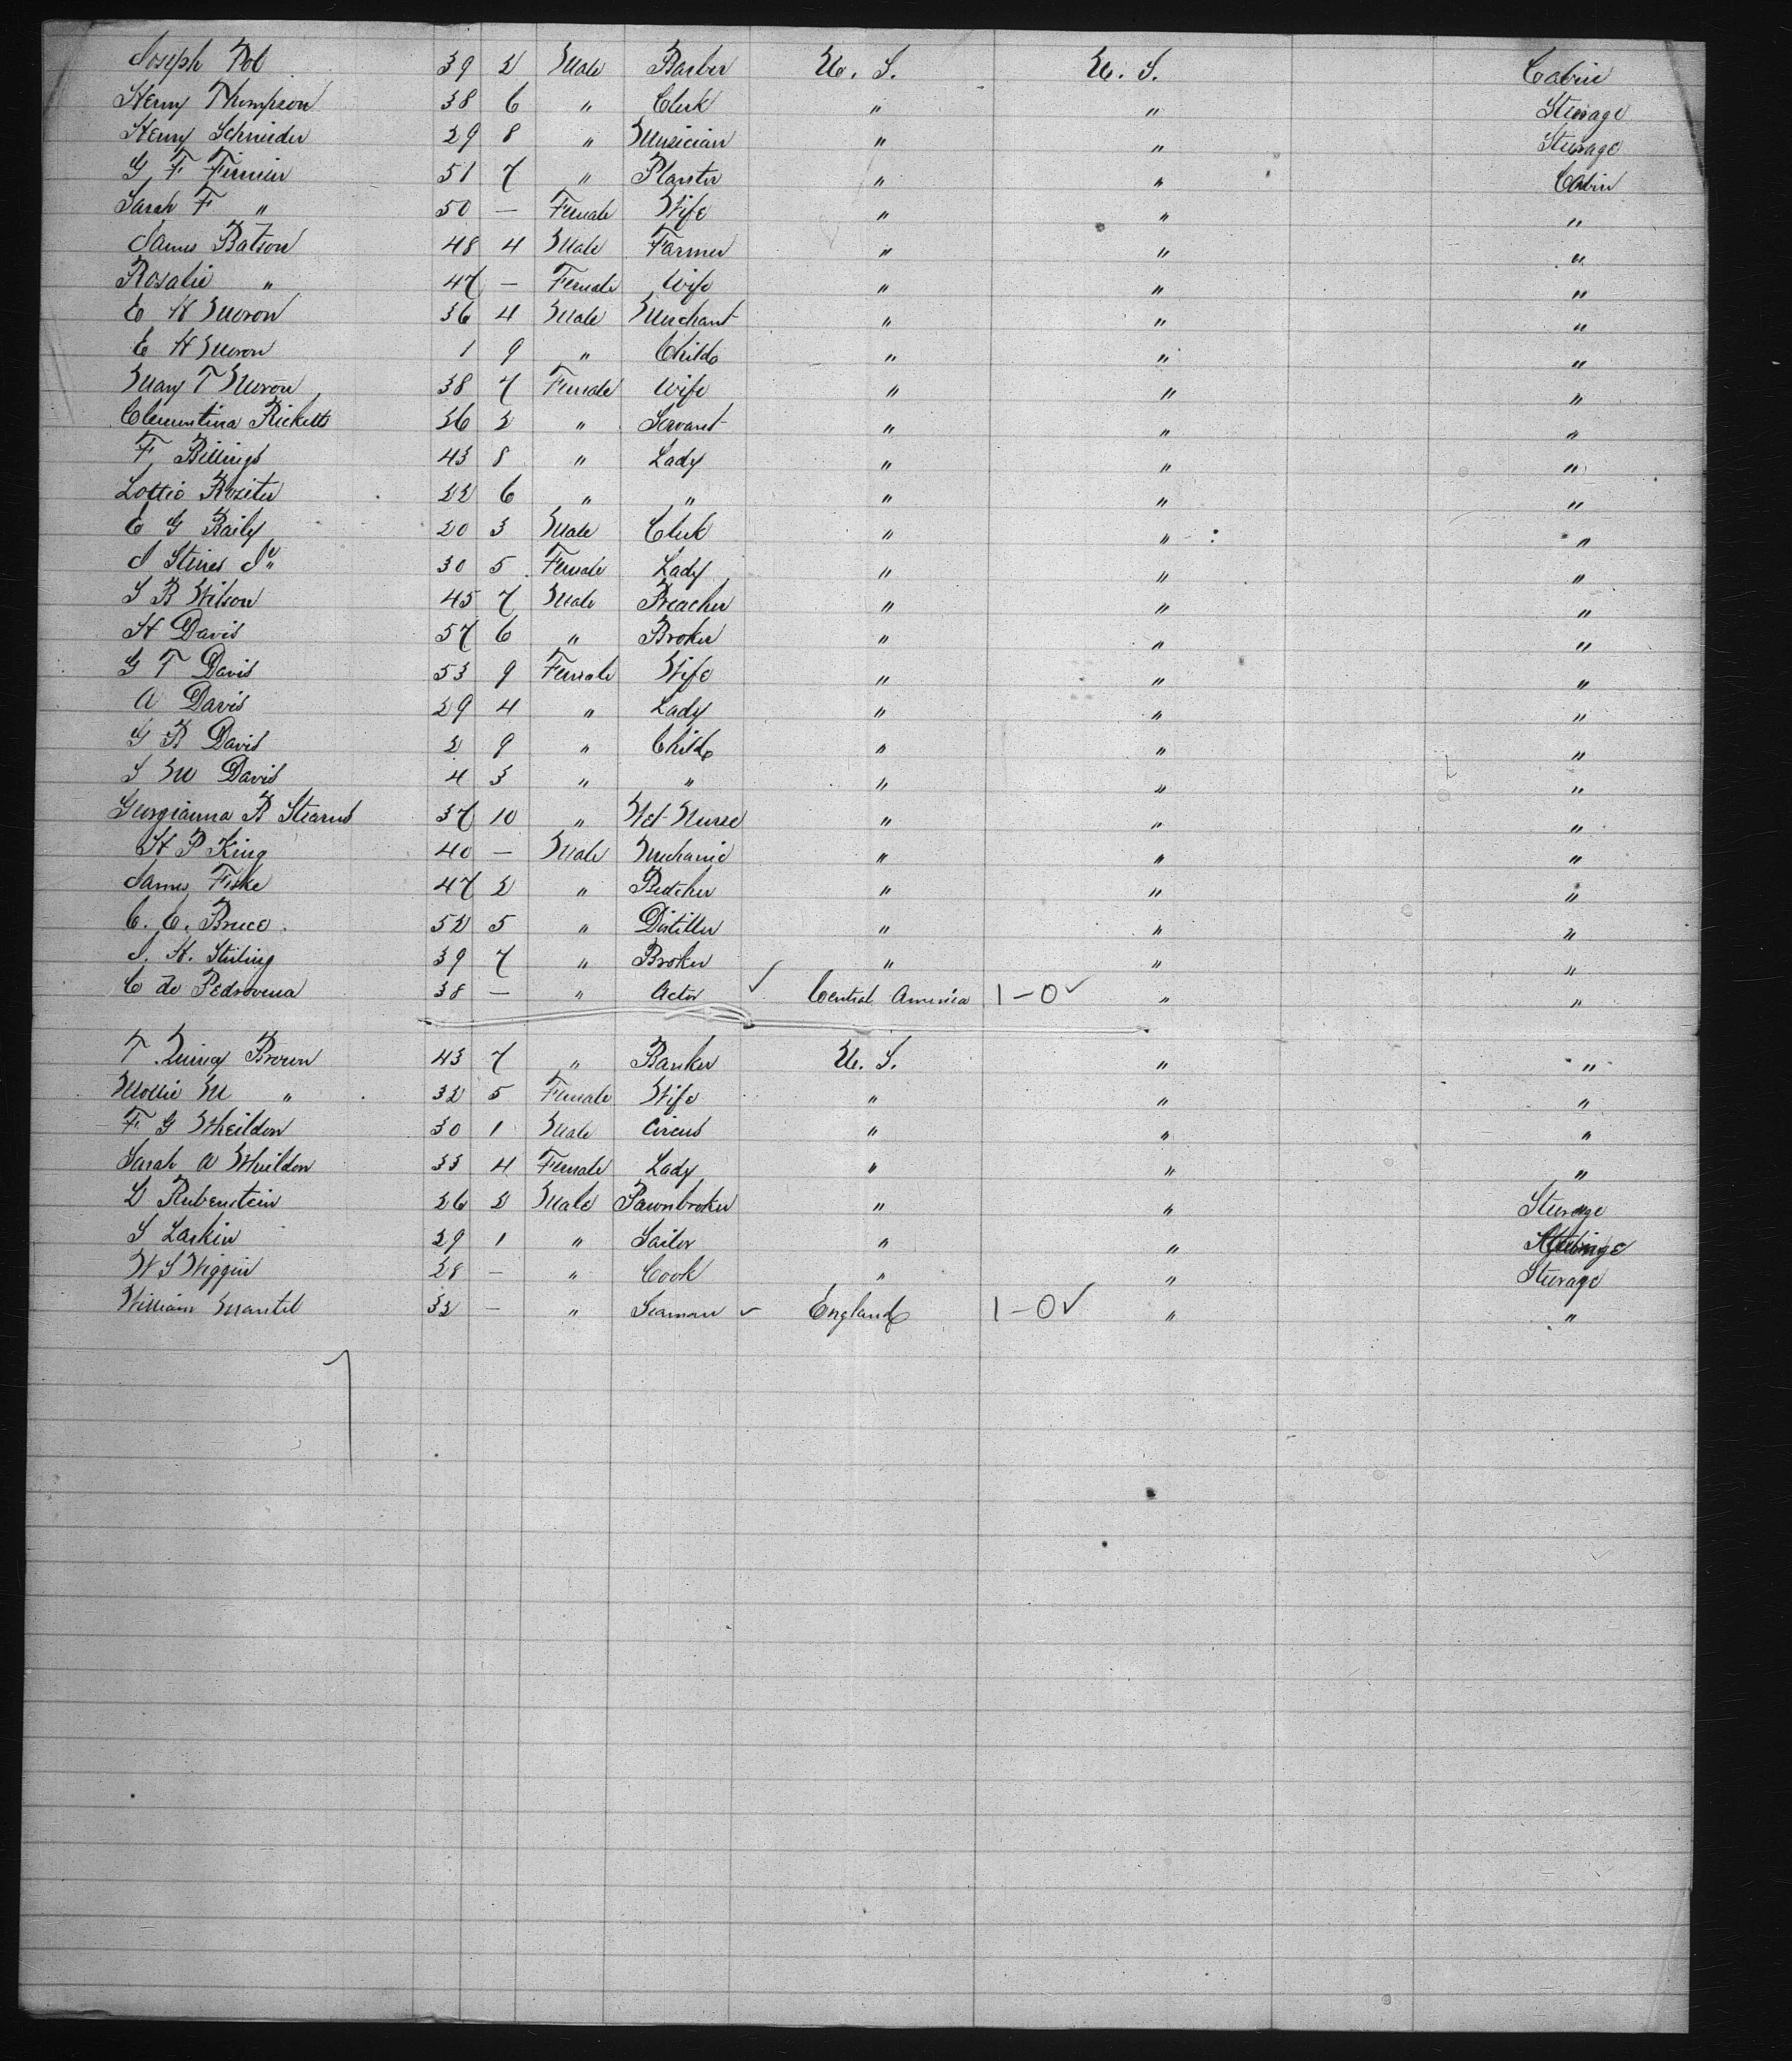 Joseph Pol 39 2 Male Barber U. S. U. S. Cabin
Henry Thompson 38 6 " Clerk " " Steerage
Henry Schnieder 29 8 " Musician " " Steerage
G F 51 7 " Planter " " Cabin
Sarah F " 50 — Female Wife " " "
James Batson 48 4 Male Farmer " " "
Rosalie " 47 — Female Wife " " "
E H Moron 36 4 Male Merchant " " "
E H Moron 1 9 " Child " " "
Mary T Moron 38 7 Female Wife " " "
Clementina Ricketts 26 2 " Servant " " "
F Billings 43 8 " Lady " " "
Lottie Roziter 22 6 " " " " "
E G Baily 20 3 Male Clerk " " "
J Stines Jr 30 5 Female Lady " " "
S B Wilson 45 7 Male Preacher " " "
H Davis 57 6 " Broker " " "
G T Davis 53 9 Female Wife " " "
A Davis 29 4 " Lady " " "
G B Davis 2 9 " Child " " "
S M Davis 4 3 " " " " "
Georgianna B Stearns 37 10 " Wet-Nurse " " "
H P King 40 — Male Mechanic " " "
James Fiske 47 2 " Butcher " " "
C. C. Bruce 52 5 " Distiller " " "
J. H. Stirling 39 7 " Broker " " "
C de Pedrovena 38 — " Actor ✓ Central America 1-0 ✓ " "
T. Quincy Brown 43 7 " Banker U. S. " "
Mollie M " 32 5 Female Wife " " "
F G Wheildon 30 1 Male Circus " " "
Sarah A Wheildon 33 4 Female Lady " " "
L Rubenstein 26 2 Male Pawnbroker " " Steerage
S Larkin 29 1 " Sailor " " Steerage
W S Wiggin 28 — " Cook " " Steerage
William Mantel 32 — " Seaman ✓ England 1-0 ✓ " "